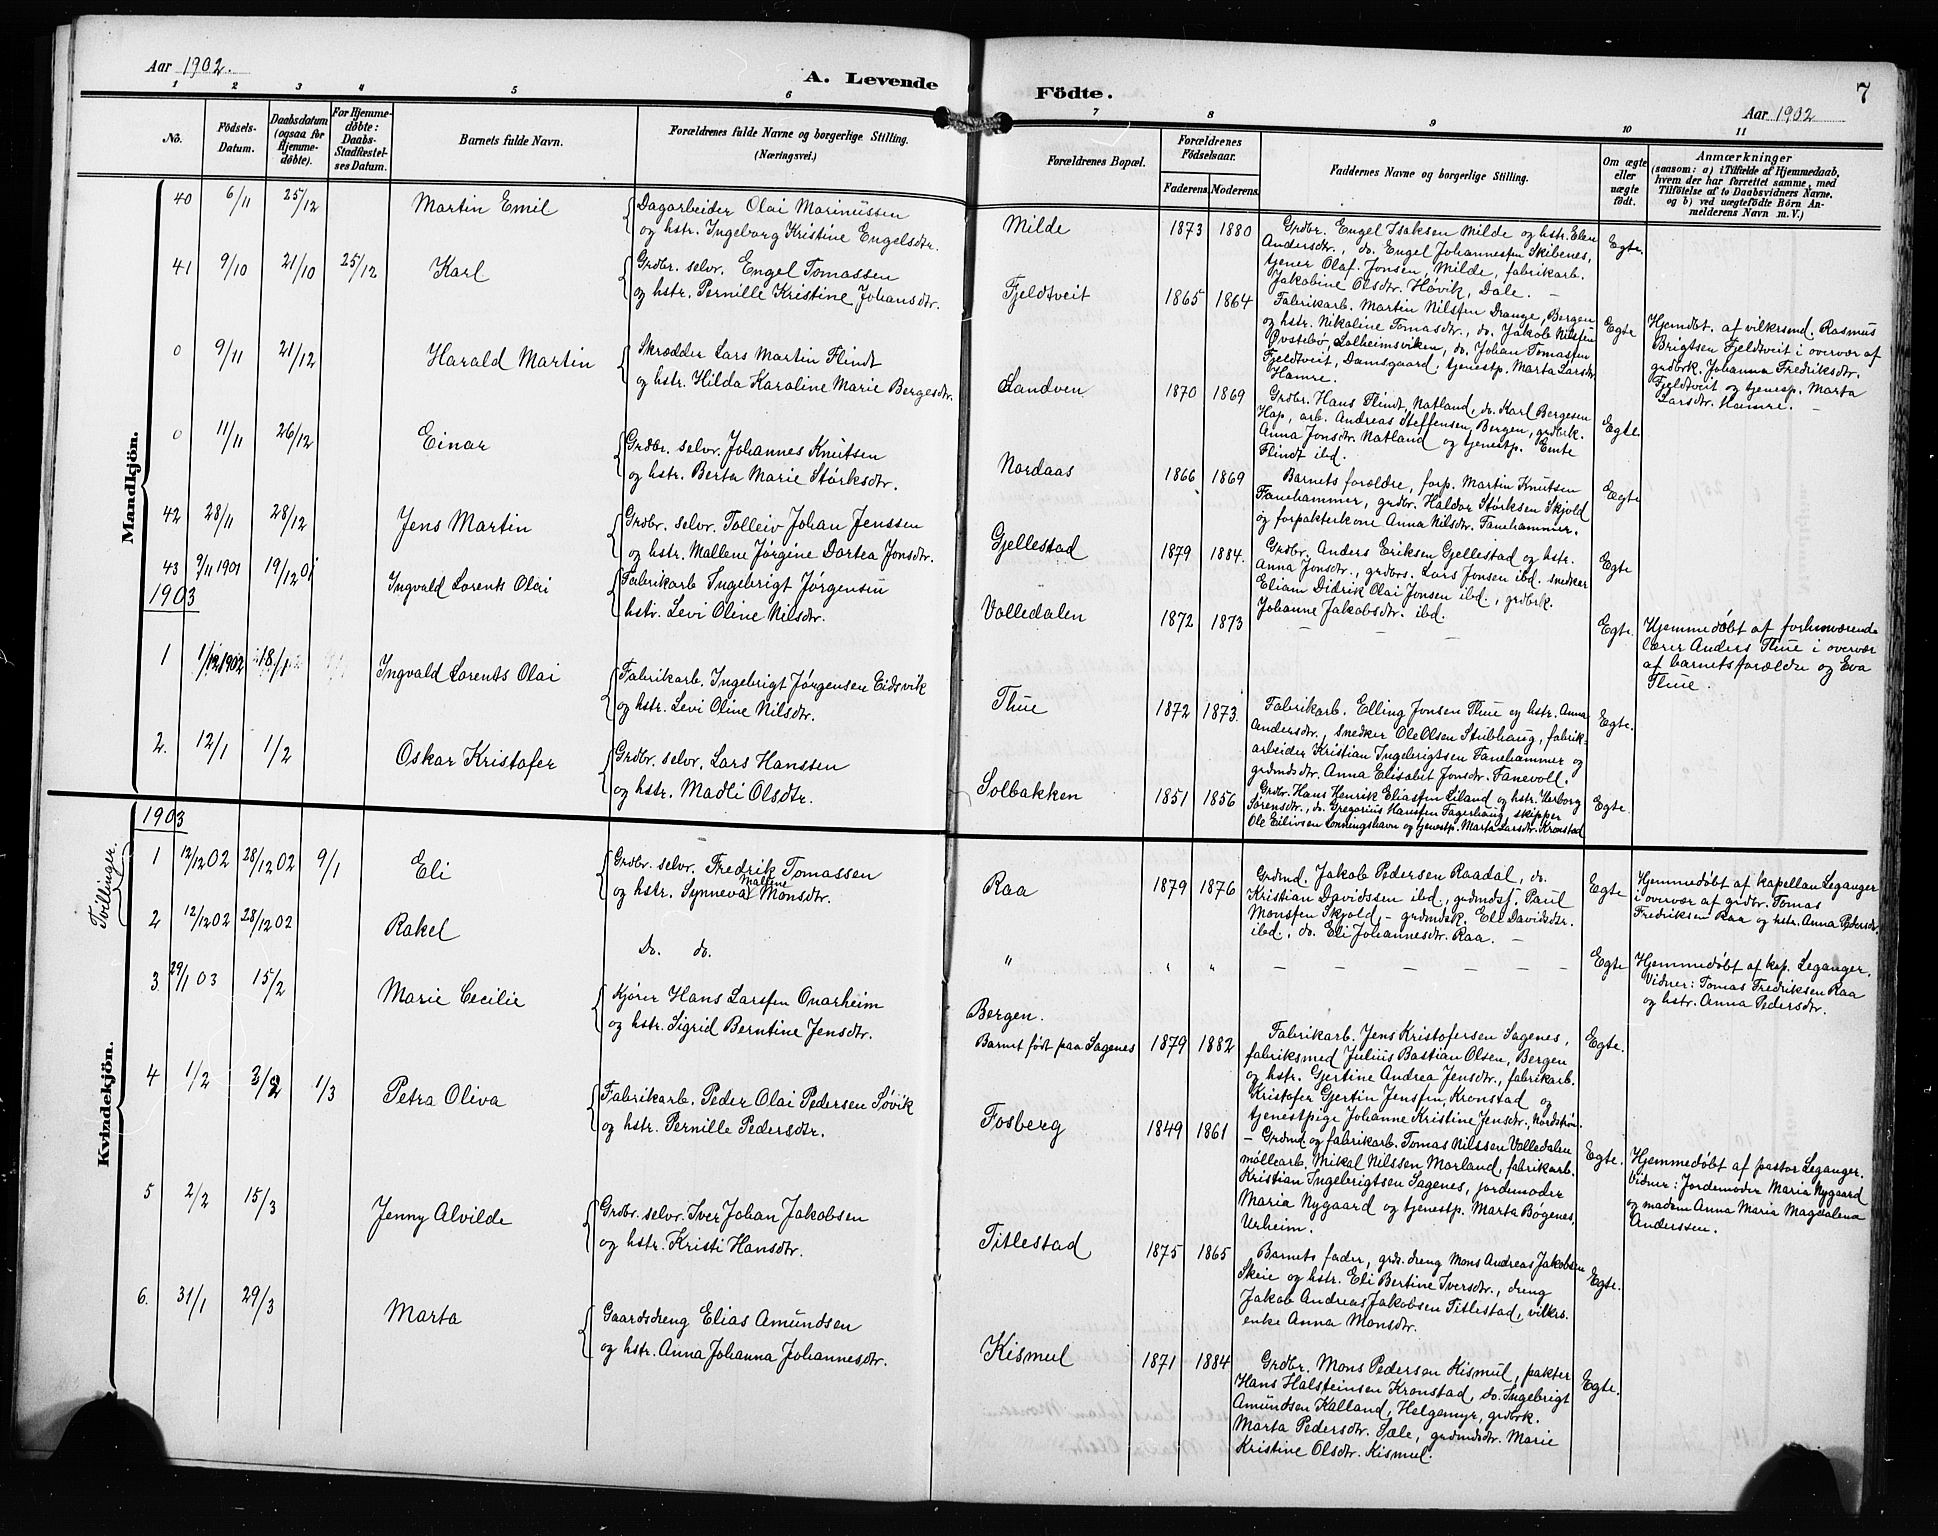 Aar 1902.
A. Levende
1 2 3 4 5 6
No.
Födsels-
Datum.
Daabsdatum
(ogsaa for
Hjemme-
døbte).
For Hjemme-
døbte:
Daabs-
Stadfæstel-
ses Datum.
Barnets fulde Navn.
Forældrenes fulde Navne og borgerlige Stilling.
(Næringsvei.)
Mandkjön.
40 6/11 25/12 Martin Emil Dagarbeider Olai Marinussen
og hstr. Ingeborg Kristine Engelsdtr.
41 9/10 21/10 25/12 Karl Grdbr. selv. Engel Tomassen
og hstr. Pernille Kristine Johansdtr.
0 9/11 21/12 Harald Martin Skrædder Lars Martin Flindt
og hstr. Hilda Karoline Marie Bergesdtr.
0 11/11 26/12 Einar Grdbr. selvr. Johannes Knutsen
og hstr. Berta Marie Størksdtr.
42 28/11 28/12 Jens Martin Grdbr. selvr. Tolleiv Johan Jenssen
og hstr. Mallene Jørgine Dortea Jonsdtr.
43 9/11 1901 19/12 01 Ingvald Lorents Olai Fabrikarb Ingebrigt Jørgensen
hstr. Levi Oline Nilsdtr.
1903
1 1/12 1902 18/1 Ingvald Lorents Olai Fabrikarb. Ingebrigt Jørgensen Eidsvik
og hstr. Levi Oline Nilsdtr.
2. 12/1 1/2 Oskar Kristofer Grdbr. selvr. Lars Hanssen
og hstr. Madli Olsdtr.
Kvindekjön.
1903
Tvillinger.
1 12/12 02 28/12 02 9/1 Eli Grdbr. selvr. Fredrik Tomassen
og hstr. Synneva Mallene Monsdtr.
2 12/12 02 28/12 02 Rakel Do. do.
3 29/1 03 15/2 Marie Cecilie Kjører Hans Larsen Onarheim
og hstr. Sigrid Berntine Jensdtr.
4 1/2 3/2 1/3 Petra Oliva Fabrikarb. Peder Olai Pedersen Søvik
og hstr. Pernille Pedersdtr.
5 2/2 15/3 Jenny Alvilde Grdbr. selvr. Iver Johan Jakobsen
og hstr. Kristi Hansdtr.
6. 31/1 29/3 Marta Gaardsdreng Elias Amundsen
og hstr. Anna Johanna Johannesdtr.
Födte.
7
Aar 1902
7 8 9 10 11
Forældrenes Bopæl.
Forældrenes
Födselsaar.
Faderens. Moderens.
Faddernes Navne og borgerlige Stilling.
Om ægte
eller
uægte
födt.
Anmærkninger
(saasom: a) i Tilfælde af Hjemmedaab,
hvem der har forrettet samme, med
Tilföielse af to Daabsvidners Navne,
og b) ved uægtefödte Börn An-
melderens Navn m. V.)
Milde 1873 1880 Grdbr. Engel Isaksen Milde og hstr. Elen
Andersdtr., do. Engel Johannessen Skibenes,
tjener Olaf Jonsen, Milde, fabrikarb.
Jakobine Olsdtr. Høvik, Dale. –
Egte.
Fjeldtveit 1865 1864 Fabrikarb. Martin Nilsen Drange, Bergen
og hstr. Nikoline Tomasdtr., do. Jakob Nilsen
Øvstebø, Lolheimsviken, do. Johan Tomassen
Fjeldtveit, Damsgaard, tjenestp. Marta Larsdtr.
Hamre.
Egte
Hjemdbt. af vilkrsmd. Rasmus
Brigtsen Fjeldtveit i overvær af
grdbrk. Johanna Fredriksdtr.
Fjeldtveit og tjenesp. Marta
Larsdtr. Hamre. –
Sandven 1870 1869 Grdbr. Hans Flindt, Natland, do. Karl Bergesen
Hop, arb. Andreas Steffensen, Bergen, grdbrk.
Anna Jonsdtr. Natland og tjenestp. Emte
Flindt ibd.
Egte.
Nordaas 1866 1869 Barnets forældre, forp. Martin Knutsen
Fanehammer, grdbr. Haldor Størksen Skjold
og forpakterkone Anna Nilsdtr. Fanehammer.
Egte
Gjellestad 1879 1884. Grdbr. Anders Eriksen Gjellestad og hstr.
Anna Jonsdtr., grdbrs. Lars Jonsen ibd. snedker
Eliam Didrik Olai Jonsen ibd., grdbrk.
Johanne Jakobsdtr. ibd.
Egte
Valledalen 1872 1873 – – – – – Egte.
Hjemmedøbt af forhenværende
lærer Anders Thue i overvær
af barnets forældre og Eva
Thue.
Thue 1872 1873. Fabrikarb. Elling Jonsen Thue og hstr. Anna
Andersdtr., snedker Ole Olsen Stubhaug, fabrik-
arbeider Kristian Ingebrigtsen Fanehammer og
grdmdsdtr. Anna Elisabet Jonsdtr. Fanevoll.
Egte.
Solbakken 1851 1856 Grdbr. Hans Henrik Eliassen Liland og hstr. Verborg
Sørensdtr., do. Gregorius Hanssen Fagerhaug, skipper
Ole Eilivsen Lønningshavn og tjenestp. Marta Larsdtr. Kronstad
Egte.
Raa 1879 1876 Grdmd. Jakob Pedersen Raadal, do.
Kristian Davidssen ibd., grdmdsf. Paul
Monssen Skjold, – grdmdsk. Eli Davidsdtr.
ibd., do. Eli Johannesdtr. Raa. –
Egte
Hjemmedøbt af kapellan Leganger
i overvær af grdbr. Tomas
Fredriksen Raa og hstr. Anna Pedersdtr.
" " " – – – – – Egte
Hjemmedøbt af kap. Leganger.
Vidner: Tomas Fredriksen Raa
og hstr. Anna Pedersdtr.
Bergen.
Barnet født paa Sagenes 1879 1882 Fabrikarb. Jens Kristofersen Sagenes,
fabriksmed Julius Bastian Olsen, Bergen
og hstr. Gjertine Andrea Jensdtr., fabrikarb.
Kristofer Gjertin Jensen, Kronstad og
tjenestpige Johanne Kristine Jensdtr., Nordstrøm.
Egte.
Fosberg 1849 1861 – Grdmd og fabrikarb. Tomas Nilssen Valledalen
møllearb. Mikal Nilssen Morland, fabrikarb.
Kristian Ingebrigtsen Sagenes, jordemoder
Maria Nygaard og tjenestp. Marta Bøgenes,
Urheim.
Egte.
Hjemmedøbt af pastor Leganger.
Vidner: Jordemoder Maria Nygaard
og madem Anna Maria Magdalena
Anderssen.
Titlestad 1875 1865 Barnets fader, grds. dreng Mons Andreas Jakobsen
Skeie og hstr. Eli Bertine Iversdtr., dreng
Jakob Andreas Jakobsen Titlestad, vilkrs.
enke Anna Monsdtr.
Egte.
Kismul 1871 1884 Grdbr. Mons Pedersen Kismul, pakter
Hans Halsteinsen Kronstad, do. Ingebrigt
Amundsen Kalland, Helgemyr, grdbrk.
Marta Pedersdtr. Sæle, grdmdsdtr. Marie
Kristine Olsdtr. Kismul.
Egte.